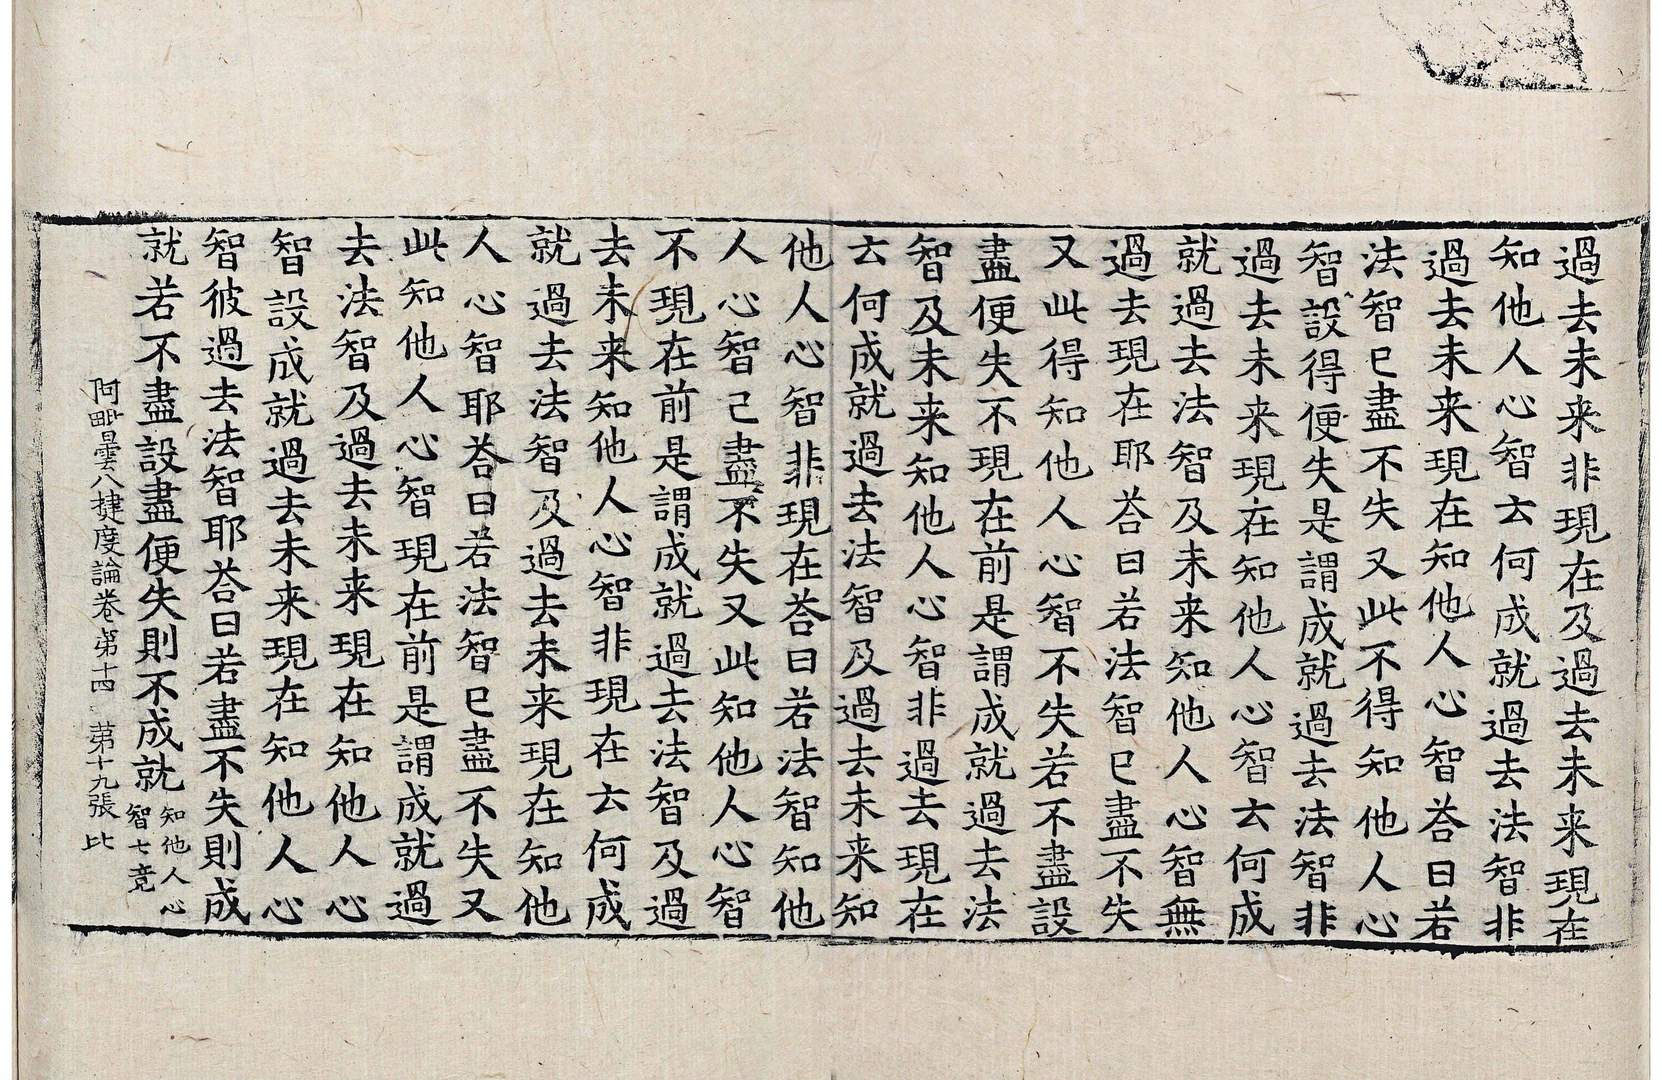 過去未来非現在及過去未来現在
知他人心智云何成就過去法智非
過去未来現在知他人心智荅曰若
法智已盡不失又此不得知他人心
智設得便失是謂成就過去法智非
過去未来現在知他人心智云何成
就過去法智及未来知他人心智無
過去現在耶荅曰若法智已盡不失
又此得知他人心智不失若不盡設
盡便失不現在前是謂成就過去法
智及未来知他人心智非過去現在
云何成就過去法智及過去未来知
他人心智非現在荅曰若法智知他
人心智已盡不失又此知他人心智
不現在前是謂成就過去法智及過
去未来知他人心智非現在云何成
就過去法智及過去未来現在知他
人心智耶荅曰若法智已盡不失又
此知他人心智現在前是謂成就過
去法智及過去未来現在知他人心
智設成就過去未来現在知他人心
智彼過去法智耶荅曰若盡不失則成
就若不盡設盡便失則不成就知他人心
智七竟
阿毗曇八揵度論卷第十四 第十九張 比